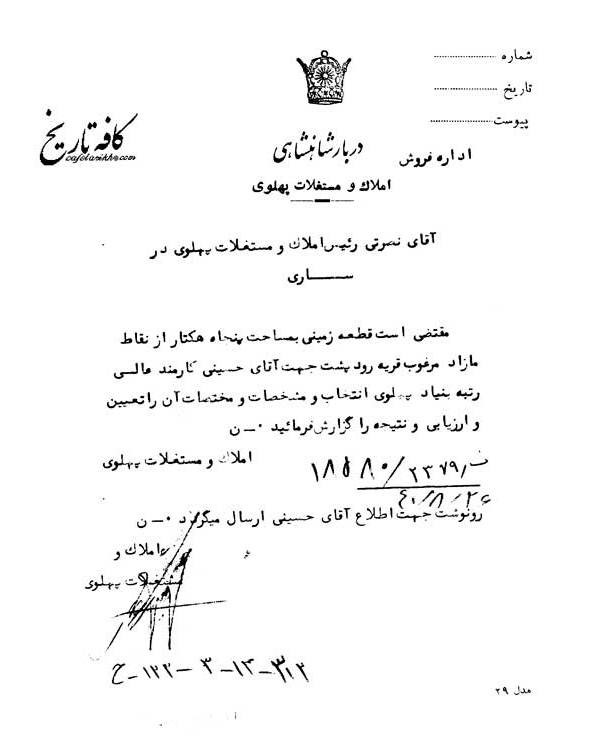 شماره
تاریخ
پیوست
کافه تاریخ
cafetarikh.com
دربار شاهنشاهی
اداره فروش
املاک و مستغلات پهلوی
آقای نصرتی رئیس املاک و مستغلات پهلوی در
ســـاری
مقتضی است قطعه زمینی بمساحت پنجاه هکتار از نقاط
مازاد مرغوب قریه رود پشت جهت آقای حسینی کارمند عالی
رتبه بنیاد پهلوی انتخاب و مشخصات و مختصات آن را تعیین
و ارزیابی و نتیجه را گزارش فرمائید ۰ــ ن
املاک و مستغلات پهلوی
رونوشت جهت اطلاع آقای حسینی ارسال میگردد ۰ــ ن
املاک و
مستغلات پهلوی
مدل ۲۹